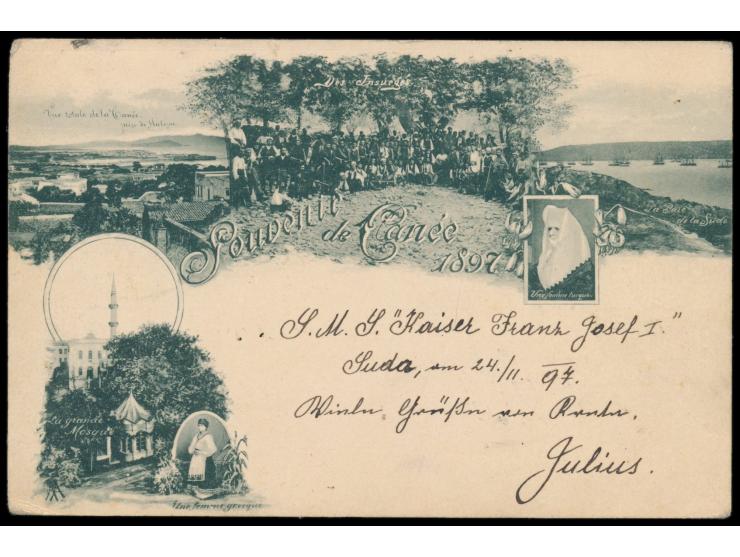 Des Insurgés
Vue totale de la Canée
prise de
La Baie
de la Sude
Souvenir
de Canée
1897
Une femme turque.
S. M. S. "Kaiser Franz Josef I."
Suda, am 24./11. 97.
Viele Grüße von Kreta.
Julius.
La grande
Mosquée
Une femme grecque